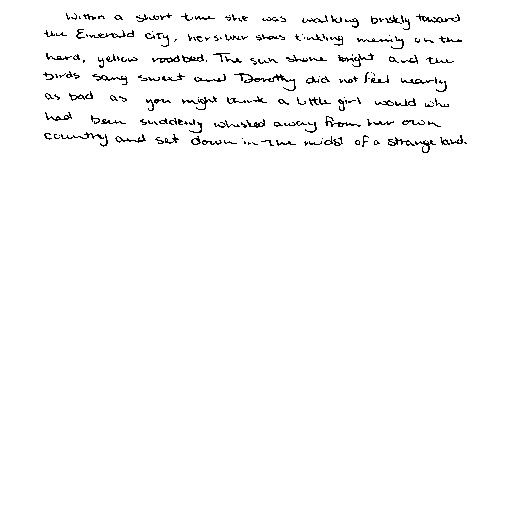 Within a short time she was walking briskly toward
the Emerald City, her silver shoes tinkling merrily on the
hard, yellow roadbed. The sun shone bright and the
birds sang sweet and Dorothy did not feel nearly
as bad as you might think a little girl would who
had been suddenly whisked away from her own
country and set down in the midst of a strange land.